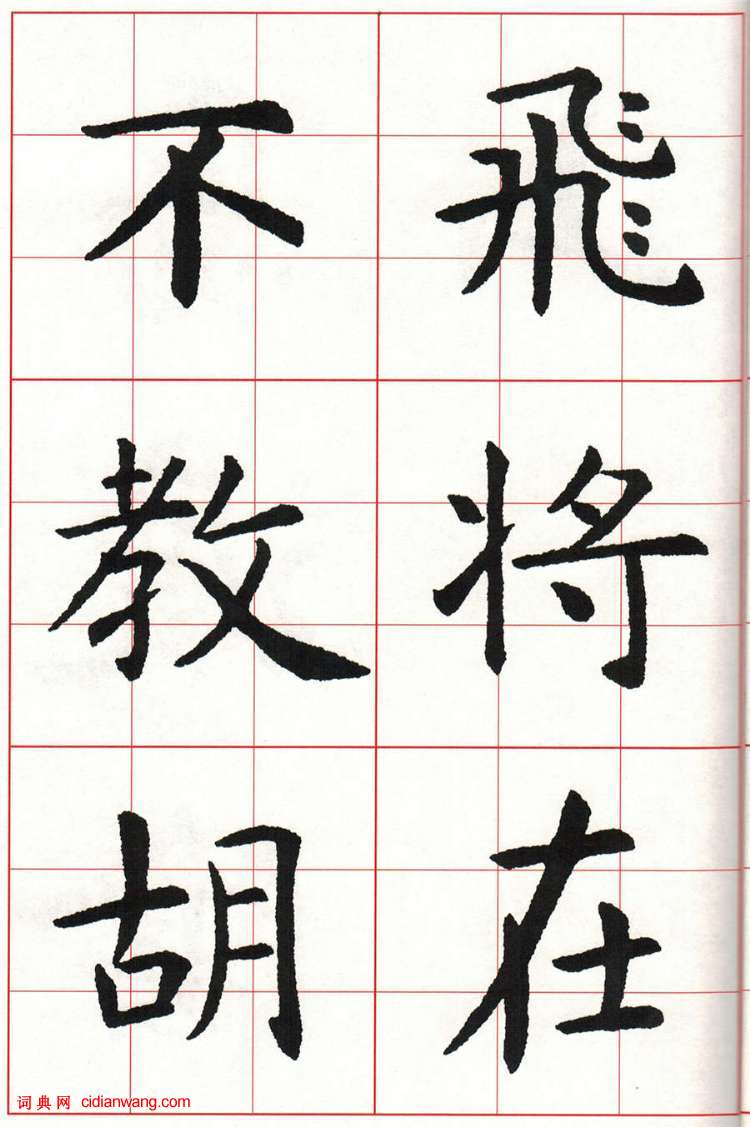 飛将在
不教胡
词典网 cidianwang.com